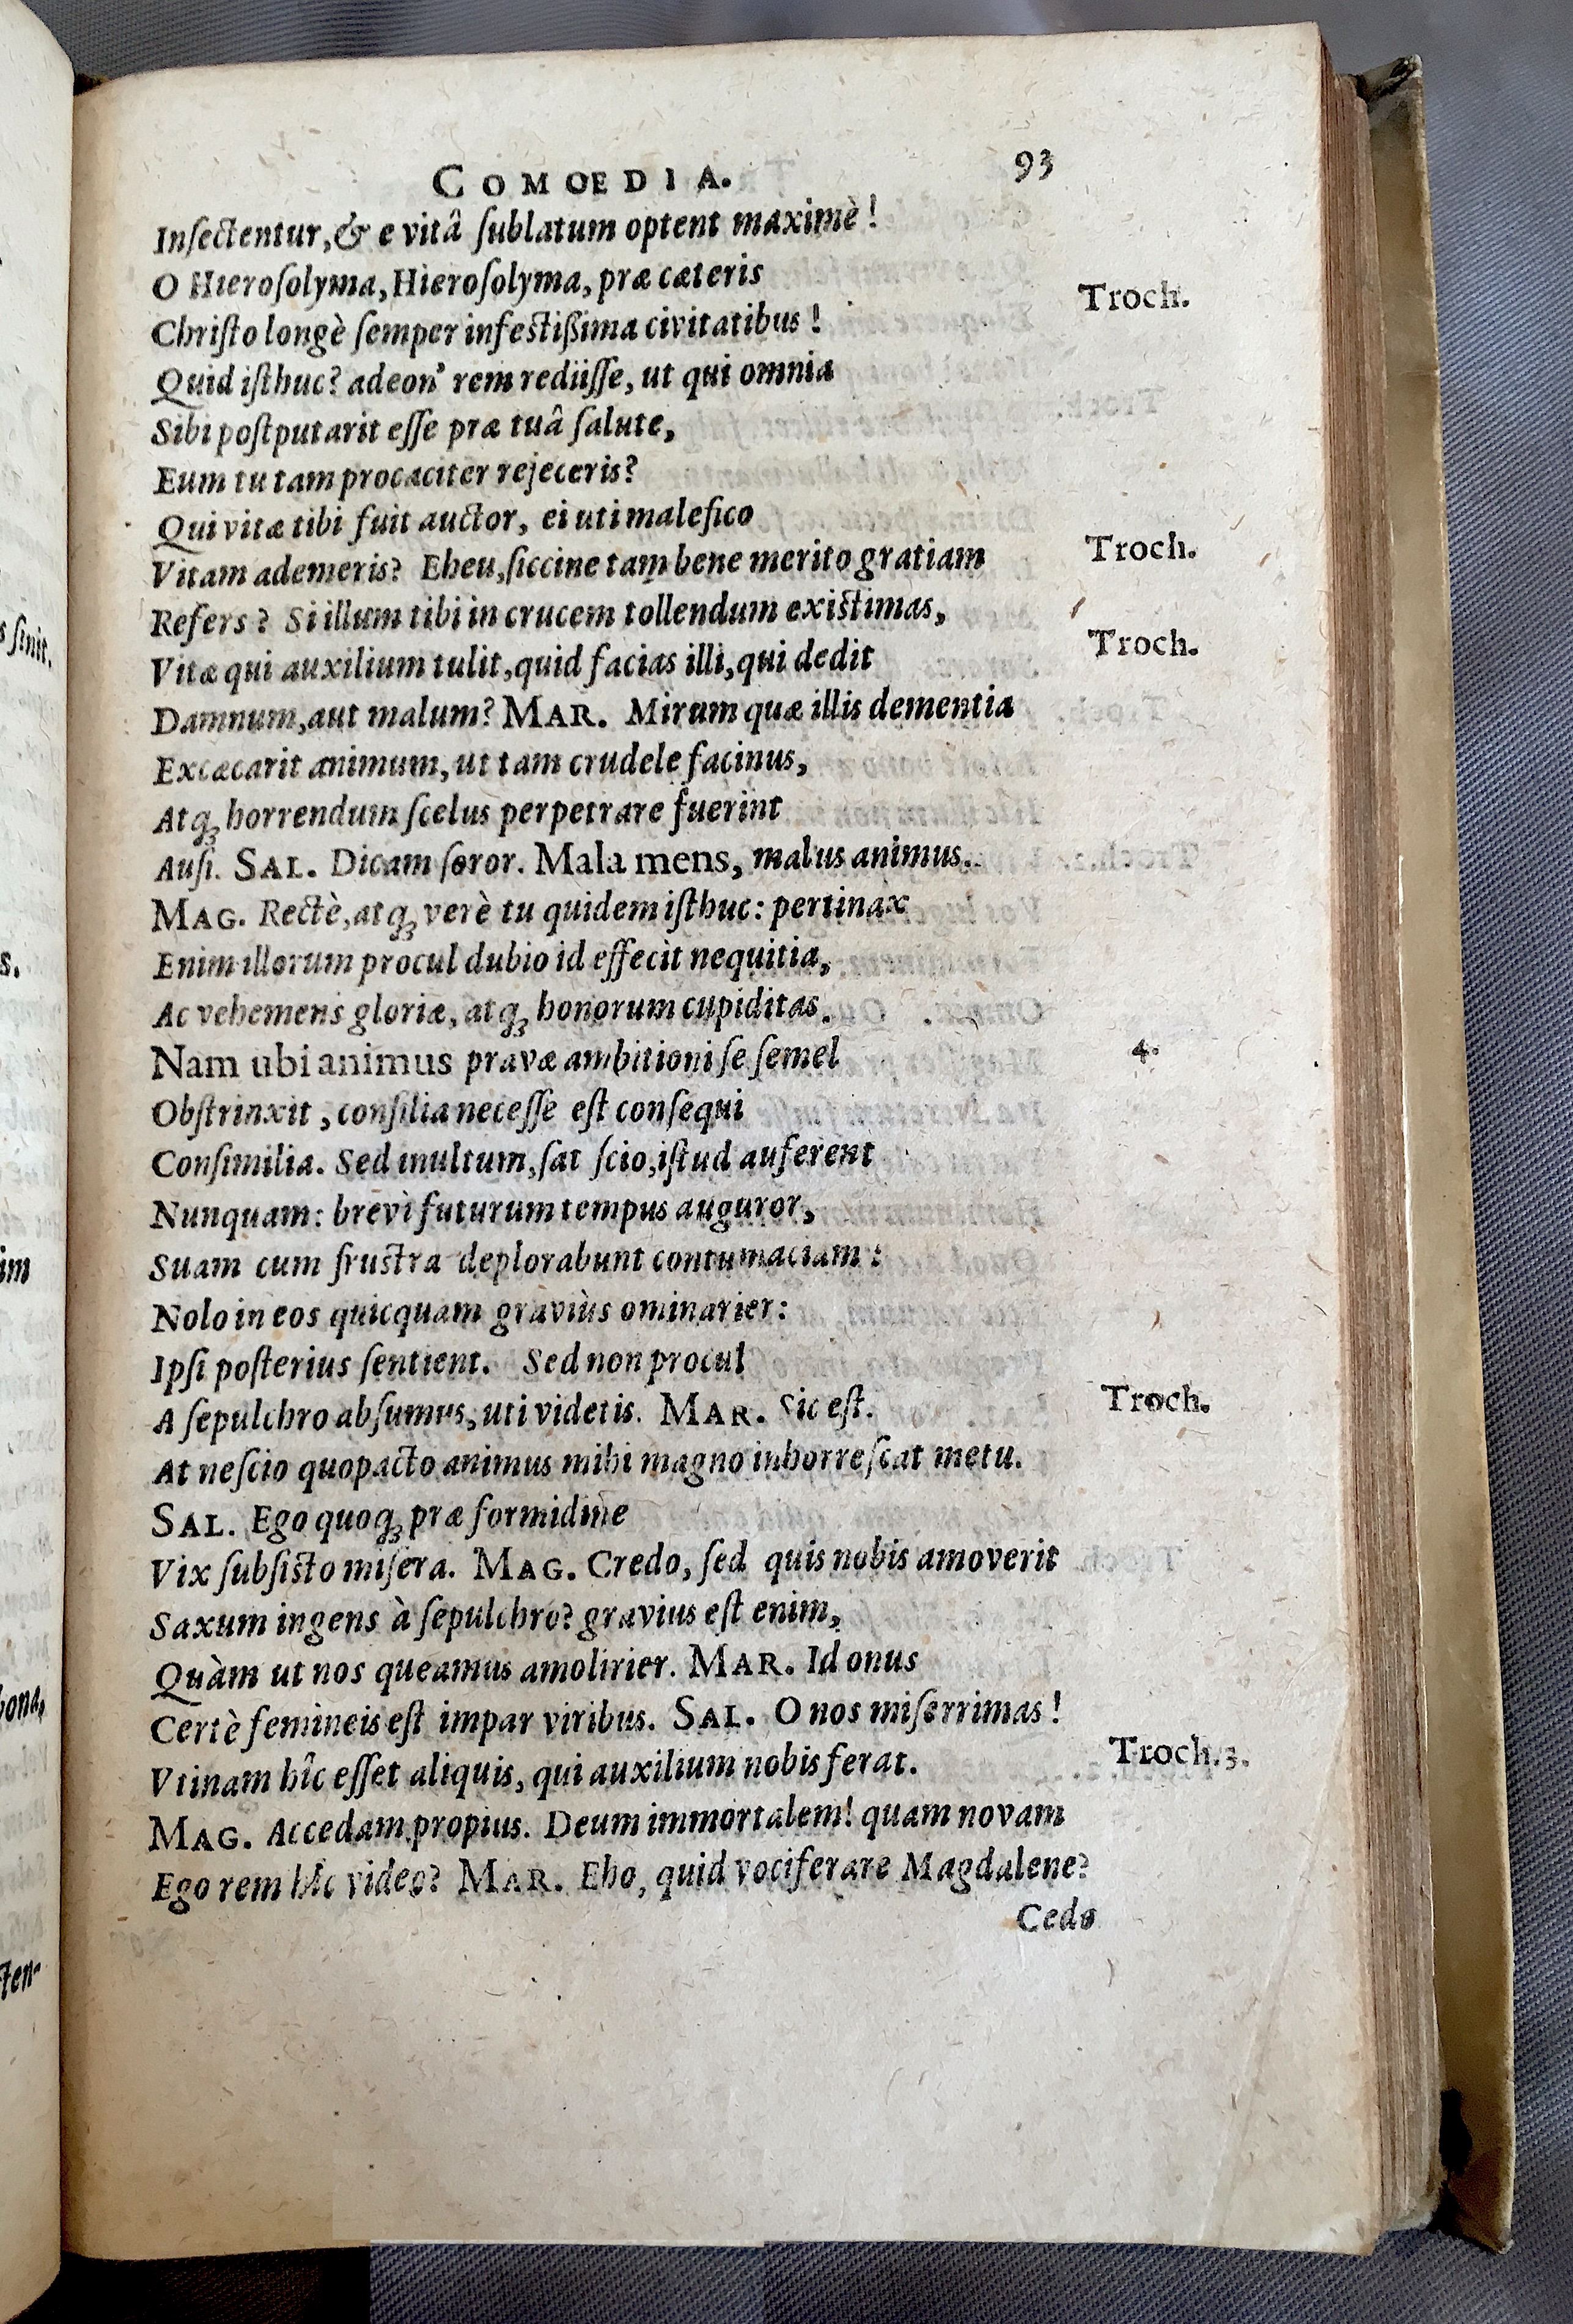 COMOEDIA. 93
Insectentur, & e vitâ sublatum optent maximè!
O Hierosolyma, Hierosolyma, præ cæteris
Troch.
Christo longè semper infestißima civitatibus!
Quid isthuc? adeon' rem rediisse, ut qui omnia
Sibi postputarit esse præ tuâ salute,
Eum tu tam procaciter rejeceris?
Qui vitæ tibi fuit auctor, ei uti malefico
Vitam ademeris? Eheu, siccine tam bene merito gratiam
Troch.
Refers? Si illum tibi in crucem tollendum existimas,
Vitæ qui auxilium tulit, quid facias illi, qui dedit
Troch.
Damnum, aut malum? MAR. Mirum quæ illis dementia
Excæcarit animum, ut tam crudele facinus,
Atq; horrendum scelus perpetrare fuerint
Ausi. SAL. Dicam soror. Mala mens, malus animus.
MAG. Rectè, atq; verè tu quidem isthuc: pertinax
Enim illorum procul dubio id effecit nequitia,
Ac vehemens gloriæ, atq; honorum cupiditas.
Nam ubi animus pravæ ambitioni se semel
4.
Obstrinxit, consilia necesse est consequi
Consimilia. Sed inultum, sat scio, istud auferent
Nunquam: brevì futurum tempus auguror,
Suam cum frustra deplorabunt contumaciam:
Nolo in eos quicquam graviùs ominarier:
Ipsi posterius sentient. Sed non procul
A sepulchro absumus, uti videtis. MAR. Sic est.
Troch.
At nescio quopacto animus mihi magno inhorrescat metu.
SAL. Ego quoq; præ formidine
Vix subsisto misera. MAG. Credo, sed quis nobis amoverit
Saxum ingens à sepulchro? gravius est enim,
Quàm ut nos queamus amolirier. MAR. Id onus
Certè femineis est impar viribus. SAL. O nos miserrimas!
Vtinam hîc esset aliquis, qui auxilium nobis ferat.
Troch. 3.
MAG. Accedam propius. Deum immortalem! quam novam
Ego rem hîc video? MAR. Eho, quid vociferare Magdalene?
Cedo